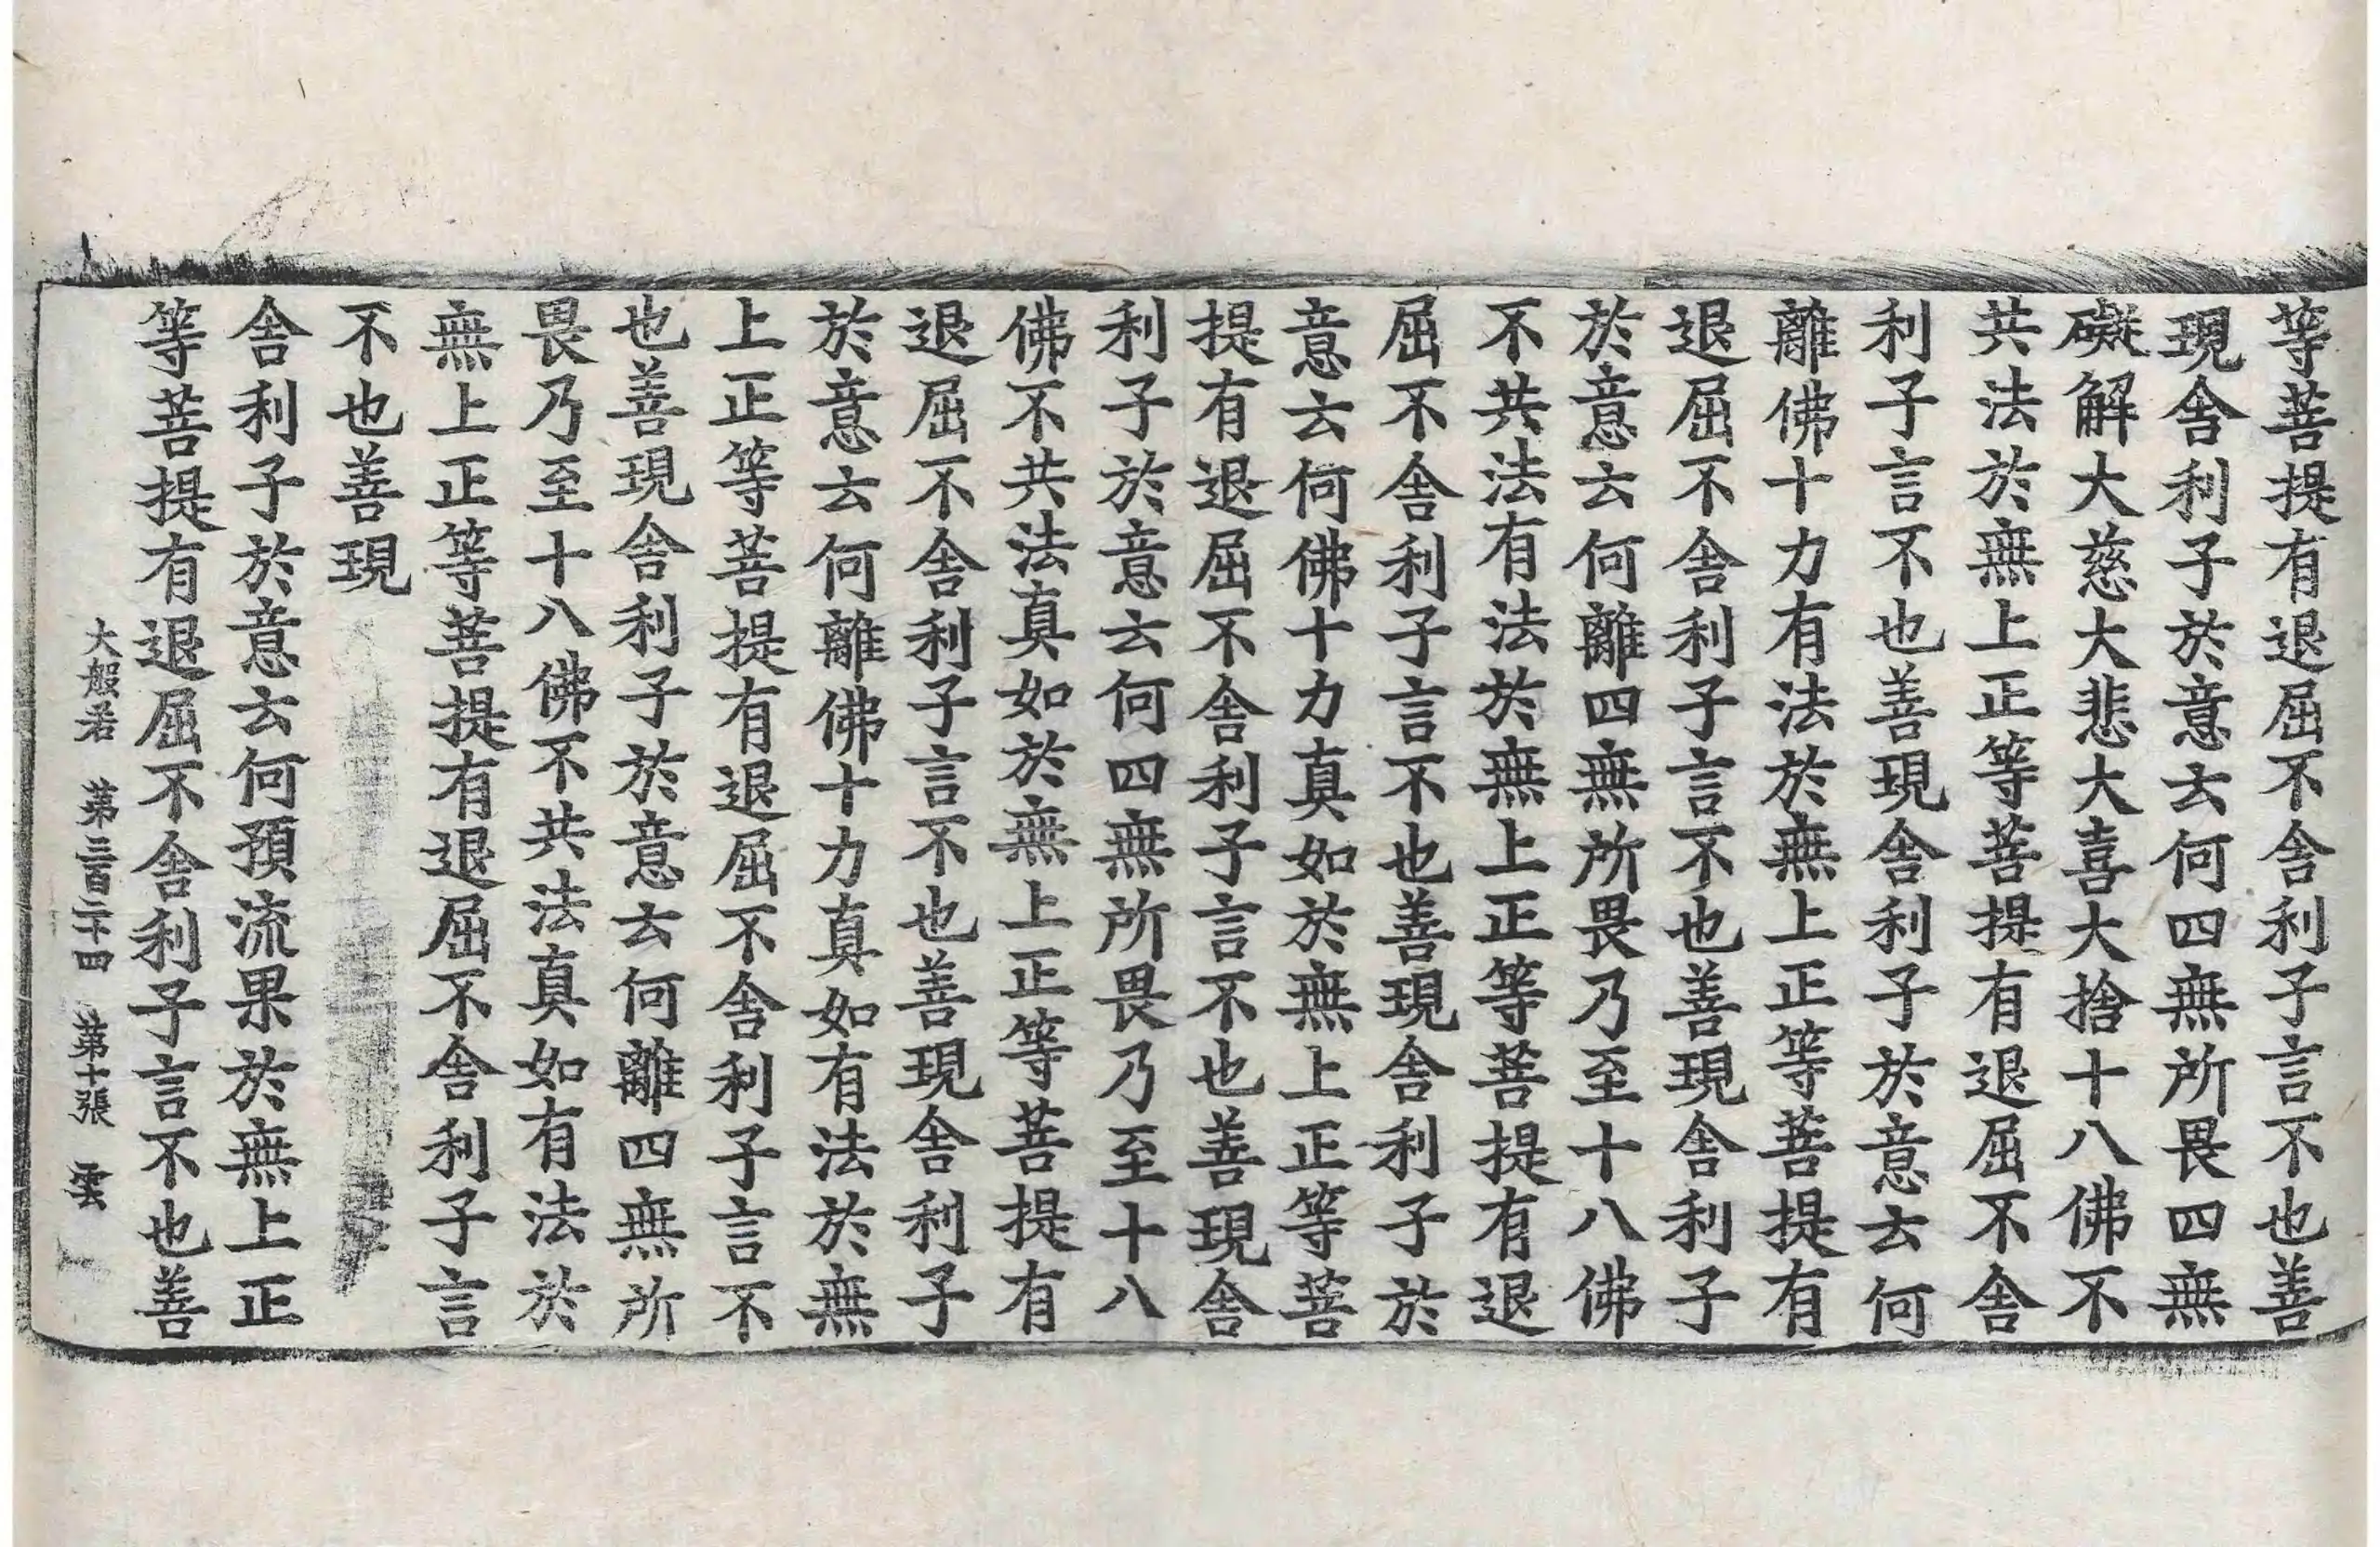 等菩提有退屈不舍利子言不也善
現舍利子於意云何四無所畏四無
礙解大慈大悲大喜大捨十八佛不
共法於無上正等菩提有退屈不舍
利子言不也善現舍利子於意云何
離佛十力有法於無上正等菩提有
退屈不舍利子言不也善現舍利子
於意云何離四無所畏乃至十八佛
不共法有法於無上正等菩提有退
屈不舍利子言不也善現舍利子於
意云何佛十力真如於無上正等菩
提有退屈不舍利子言不也善現舍
利子於意云何四無所畏乃至十八
佛不共法真如於無上正等菩提有
退屈不舍利子言不也善現舍利子
於意云何離佛十力真如有法於無
上正等菩提有退屈不舍利子言不
也善現舍利子於意云何離四無所
畏乃至十八佛不共法真如有法於
無上正等菩提有退屈不舍利子言
不也善現
舍利子於意云何預流果於無上正
等菩提有退屈不舍利子言不也善
大般若 第三百二十四 第十張 雲